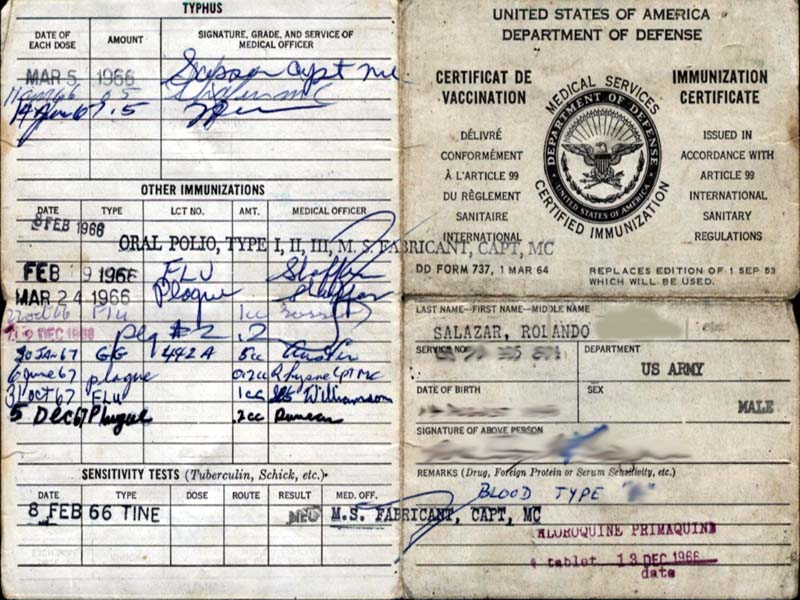 TYPHUS
DATE OF EACH DOSE
AMOUNT
SIGNATURE, GRADE, AND SERVICE OF MEDICAL OFFICER
MAR 5 1966 Capt MC
.5 MC
.5
OTHER IMMUNIZATIONS
DATE TYPE LCT NO. AMT. MEDICAL OFFICER
8 FEB 1966
ORAL POLIO, TYPE I, II, III, M. S. FABRICANT, CAPT, MC
FEB 9 1966 FLU
MAR 24 1966 Plague
Flu 1cc
DEC 1966 plg #2 .2
30 JAN 67 GG 442A 5cc Austin
6 June 67 plague 0.2cc CPT MC
31 OCT 67 FLU 1cc Williamson
5 Dec 67 Plague .2cc Duncan
SENSITIVITY TESTS (Tuberculin, Schick, etc.)
DATE TYPE DOSE ROUTE RESULT MED. OFF.
8 FEB 66 TINE NEG M.S. FABRICANT, CAPT, MC
UNITED STATES OF AMERICA
DEPARTMENT OF DEFENSE
CERTIFICAT DE VACCINATION
DÉLIVRÉ
CONFORMÉMENT
À L'ARTICLE 99
DU RÈGLEMENT
SANITAIRE
INTERNATIONAL
MEDICAL SERVICES
DEPARTMENT OF DEFENSE
UNITED STATES OF AMERICA
CERTIFIED IMMUNIZATION
IMMUNIZATION CERTIFICATE
ISSUED IN
ACCORDANCE WITH
ARTICLE 99
INTERNATIONAL
SANITARY
REGULATIONS
DD FORM 737, 1 MAR 64
REPLACES EDITION OF 1 SEP 53
WHICH WILL BE USED.
LAST NAME—FIRST NAME—MIDDLE NAME
SALAZAR, ROLANDO
SERVICE NO.
DEPARTMENT
US ARMY
DATE OF BIRTH
SEX
MALE
SIGNATURE OF ABOVE PERSON
REMARKS (Drug, Foreign Protein or Serum Sensitivity, etc.)
BLOOD TYPE
HLOROQUINE PRIMAQUINE
tablet 13 DEC 1966
date